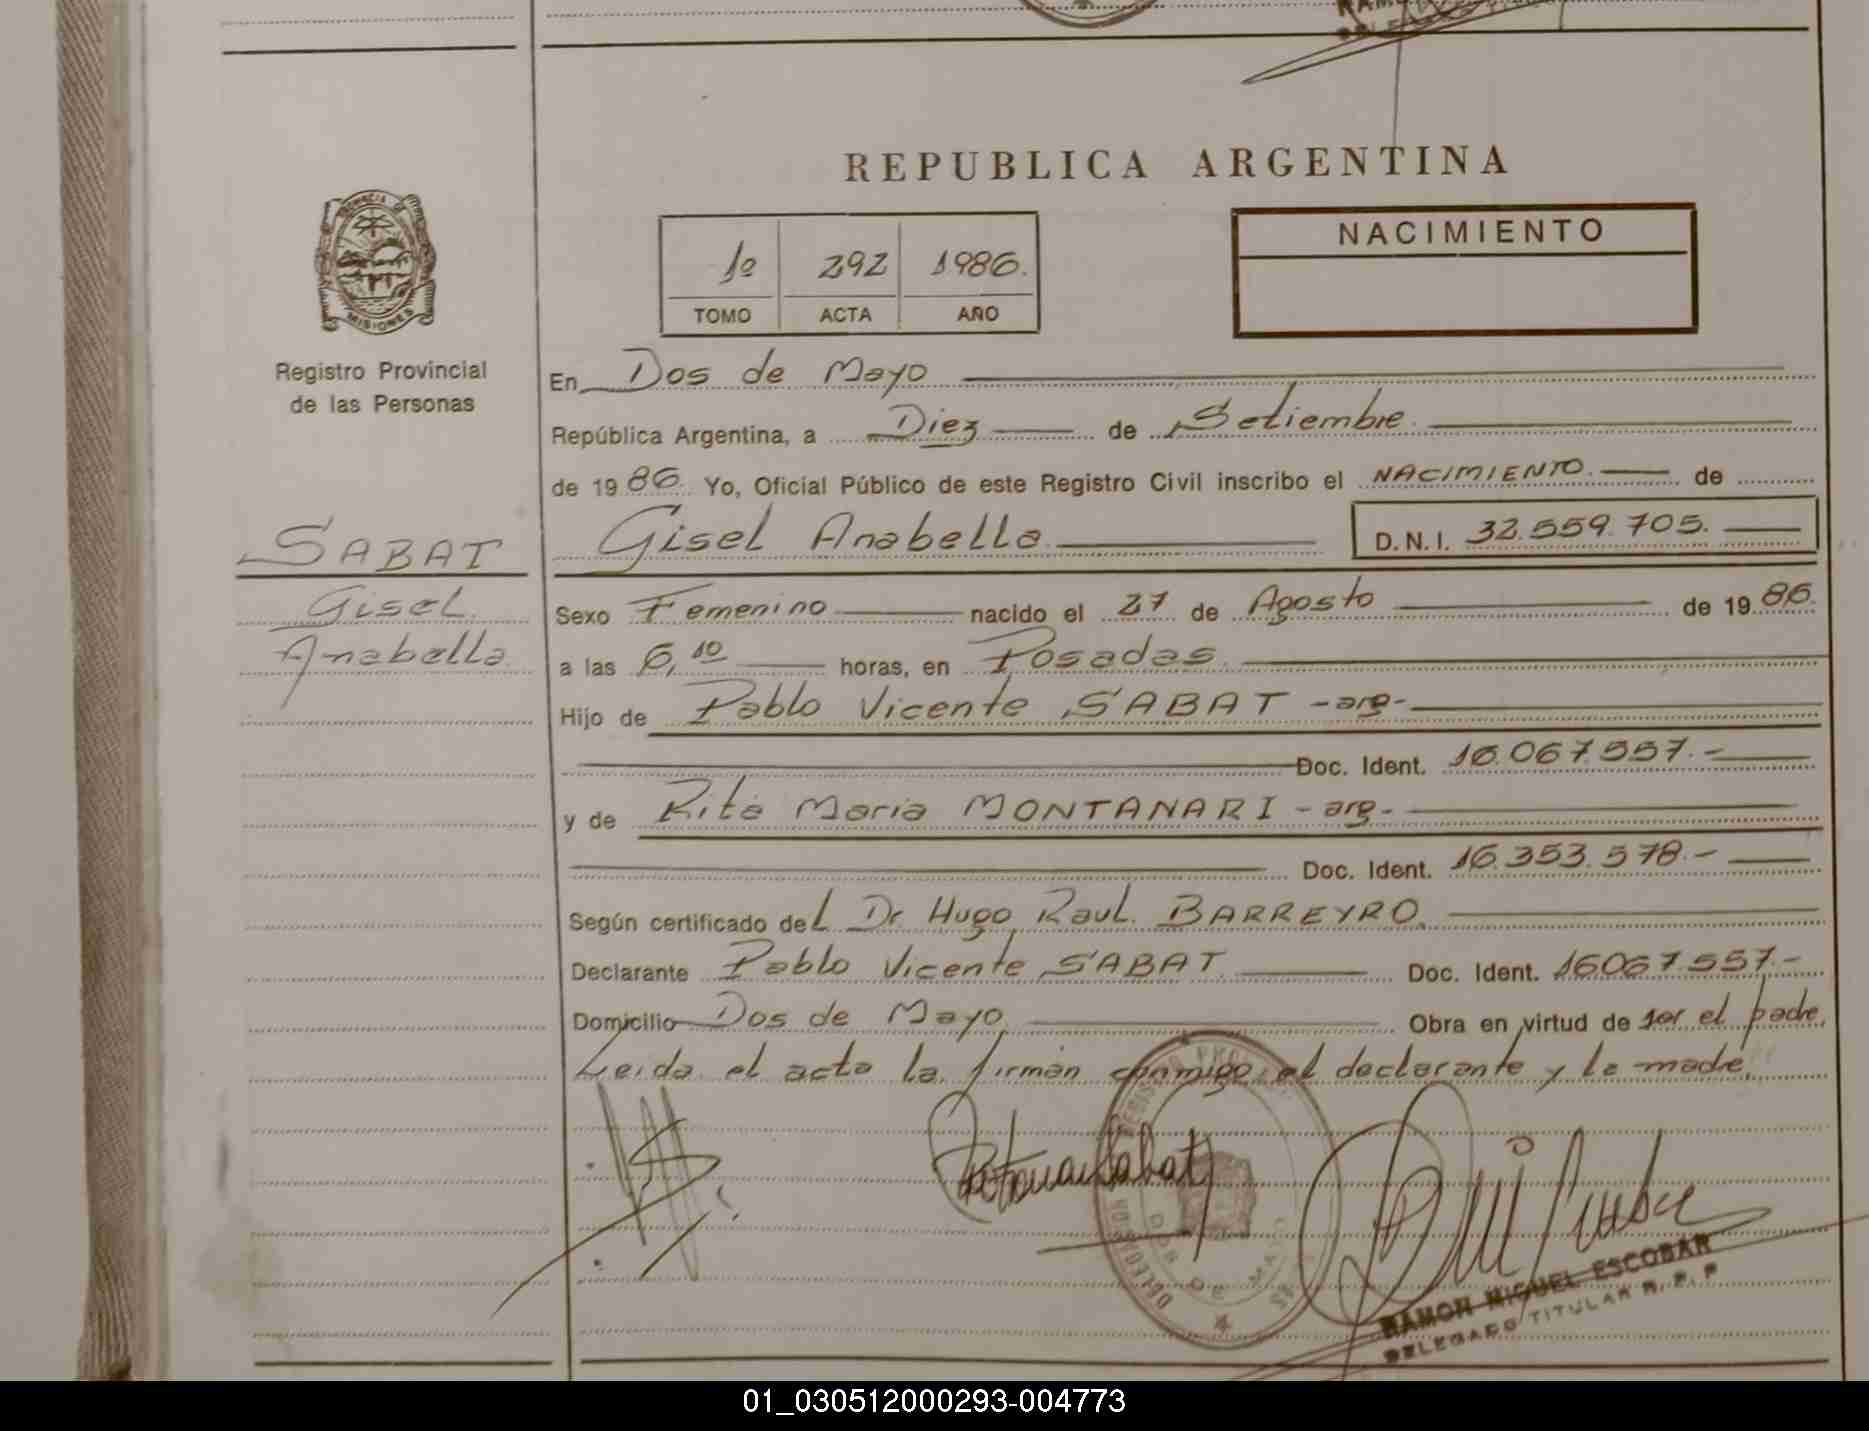 REPUBLICA ARGENTINA
PROVINCIA DE
MISIONES
Registro Provincial
de las Personas
1º 292 1986.
TOMO ACTA AÑO
NACIMIENTO
En Dos de Mayo
República Argentina, a Diez de Setiembre
de 1986. Yo, Oficial Público de este Registro Civil inscribo el NACIMIENTO. de
SABAT
Gisel
Anabella
Gisel Anabella D.N.I. 32.559.705.
Sexo Femenino nacido el 27 de Agosto de 1986.
a las 6,10 horas, en Posadas.
Hijo de Pablo Vicente SABAT - arg -
Doc. Ident. 16.067.557.-
y de Rita Maria MONTANARI - arg -
Doc. Ident. 16.353.578.-
Según certificado del Dr. Hugo Raul. BARREYRO.
Declarante Pablo Vicente SABAT Doc. Ident. 16067.557.-
Domicilio Dos de Mayo Obra en virtud de ser el padre.
Leida el acta la firman conmigo, el declarante y la madre.
DOS DE MAYO
RAMON MIGUEL ESCOBAR
DELEGADO TITULAR R. P. P.
01_030512000293-004773